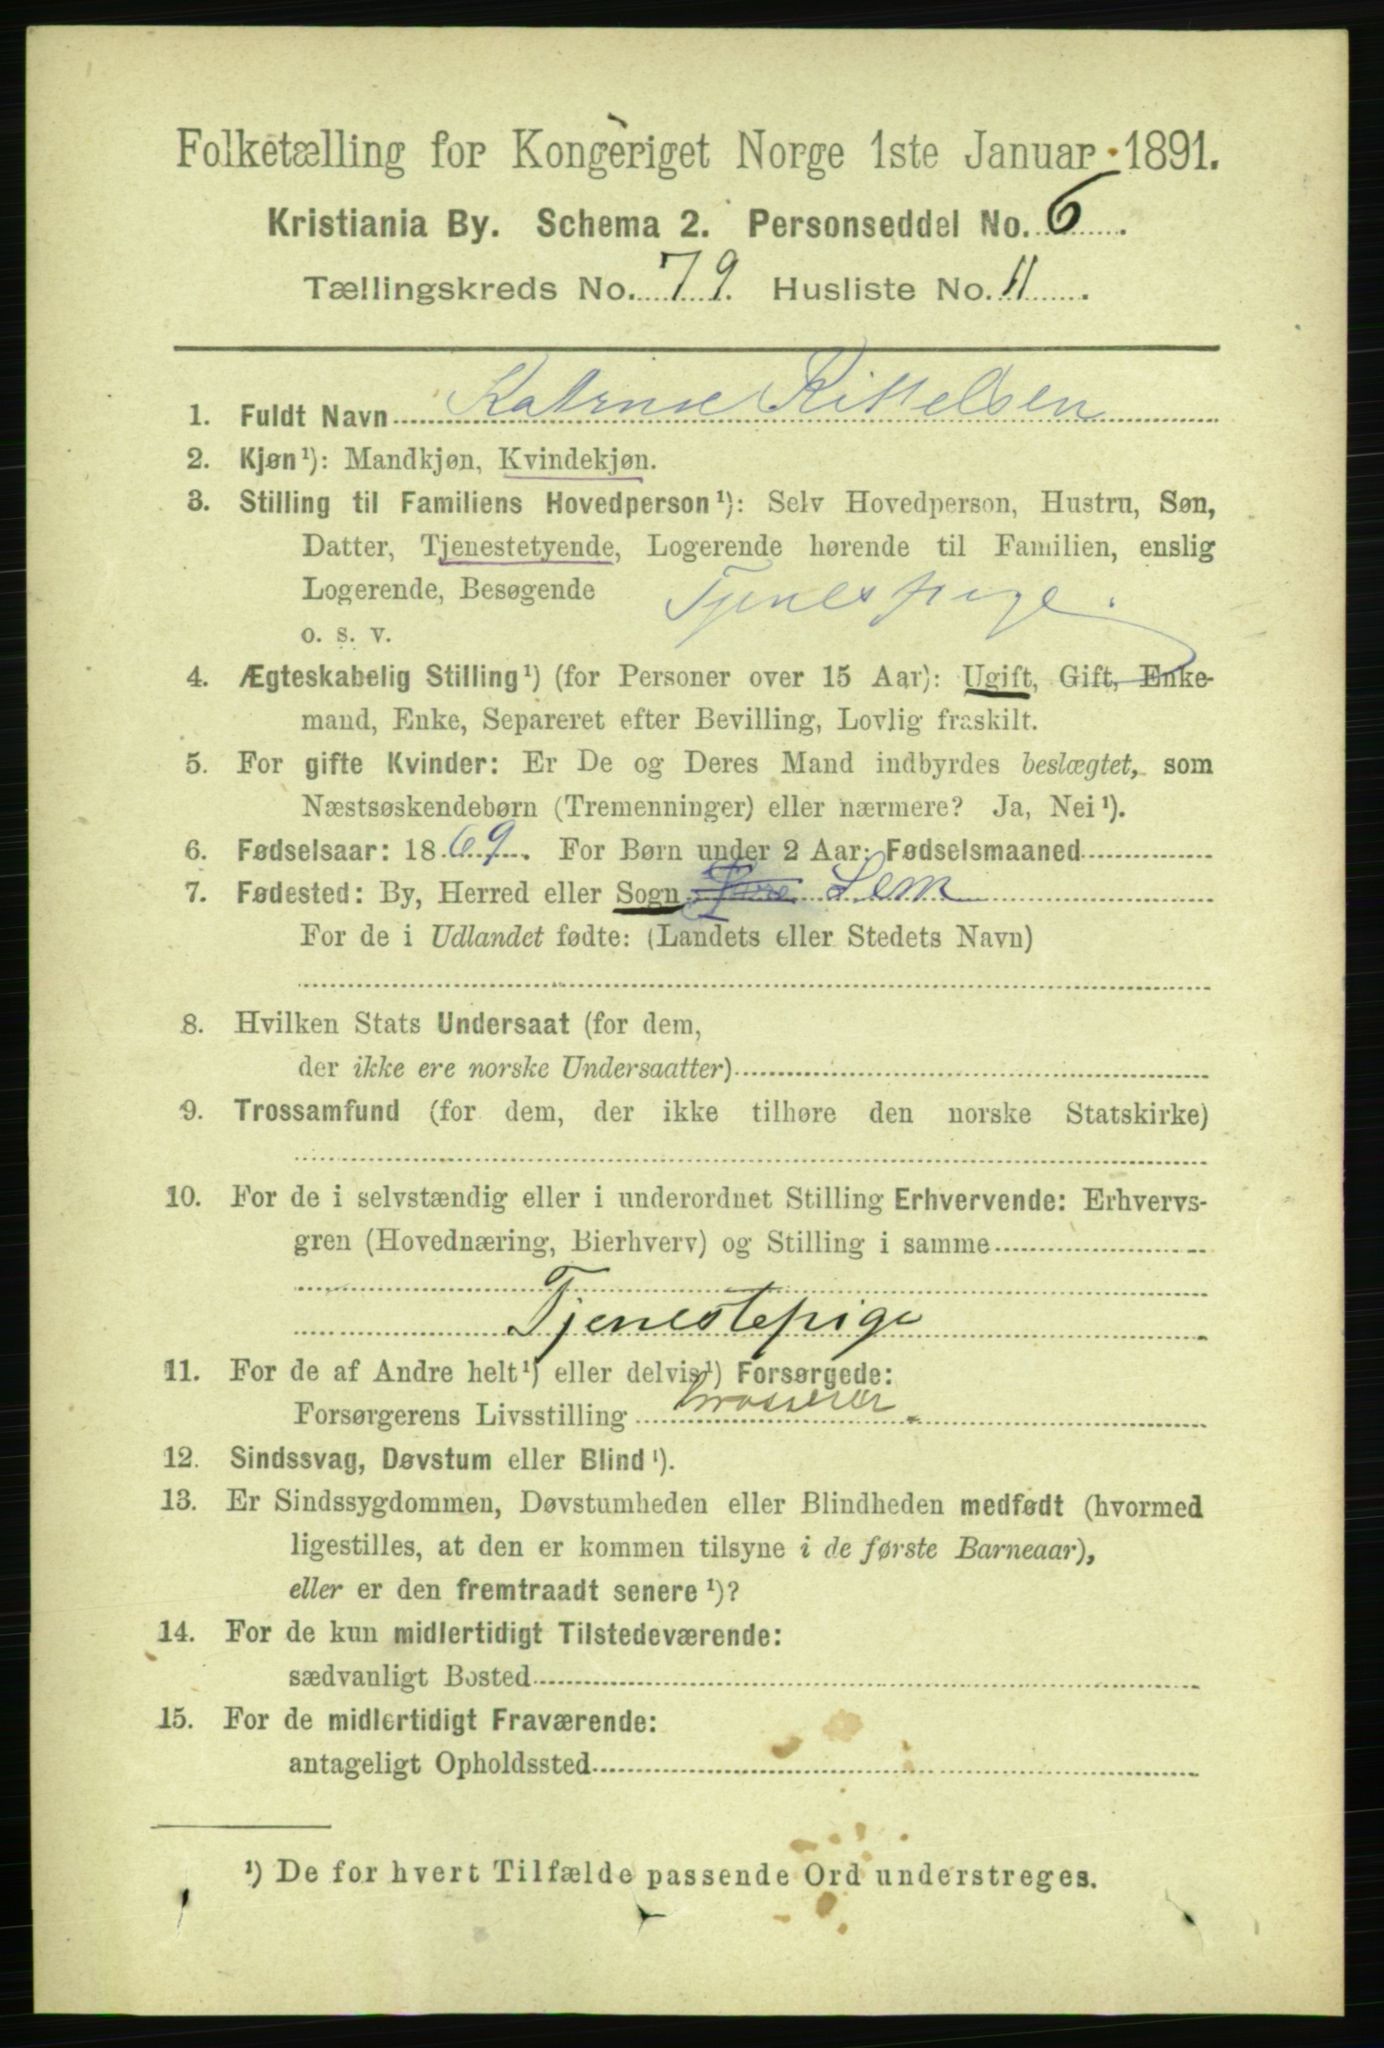 Folketælling for Kongeriget Norge 1ste Januar 1891.
Kristiania By. Schema 2. Personseddel No. 6.
Tællingskreds No. 79. Husliste No. 11.
1. Fuldt Navn Katrine Kittelsen
2. Kjøn¹): Mandkjøn, Kvindekjøn.
3. Stilling til Familiens Hovedperson¹): Selv Hovedperson, Hustru, Søn,
Datter, Tjenestetyende, Logerende hørende til Familien, enslig
Logerende, Besøgende Tjenestpige.
o. s. v.
4. Ægteskabelig Stilling¹) (for Personer over 15 Aar): Ugift, Gift, Enke-
mand, Enke, Separeret efter Bevilling, Lovlig fraskilt.
5. For gifte Kvinder: Er De og Deres Mand indbyrdes beslægtet, som
Næstsøskendebørn (Tremenninger) eller nærmere? Ja, Nei¹).
6. Fødselsaar: 1869. For Børn under 2 Aar: Fødselsmaaned
7. Fødested: By, Herred eller Sogn Lem
For de i Udlandet fødte: (Landets eller Stedets Navn)
8. Hvilken Stats Undersaat (for dem,
der ikke ere norske Undersaatter)
9. Trossamfund (for dem, der ikke tilhøre den norske Statskirke)
10. For de i selvstændig eller i underordnet Stilling Erhvervende: Erhvervs-
gren (Hovednæring, Bierhverv) og Stilling i samme
Tjenestepige
11. For de af Andre helt¹) eller delvis¹) Forsørgede:
Forsørgerens Livsstilling Grosserer.
12. Sindssvag, Døvstum eller Blind¹).
13. Er Sindssygdommen, Døvstumheden eller Blindheden medfødt (hvormed
ligestilles, at den er kommen tilsyne i de første Barneaar),
eller er den fremtraadt senere¹)?
14. For de kun midlertidigt Tilstedeværende:
sædvanligt Bosted
15. For de midlertidigt Fraværende:
antageligt Opholdssted
¹) De for hvert Tilfælde passende Ord understreges.